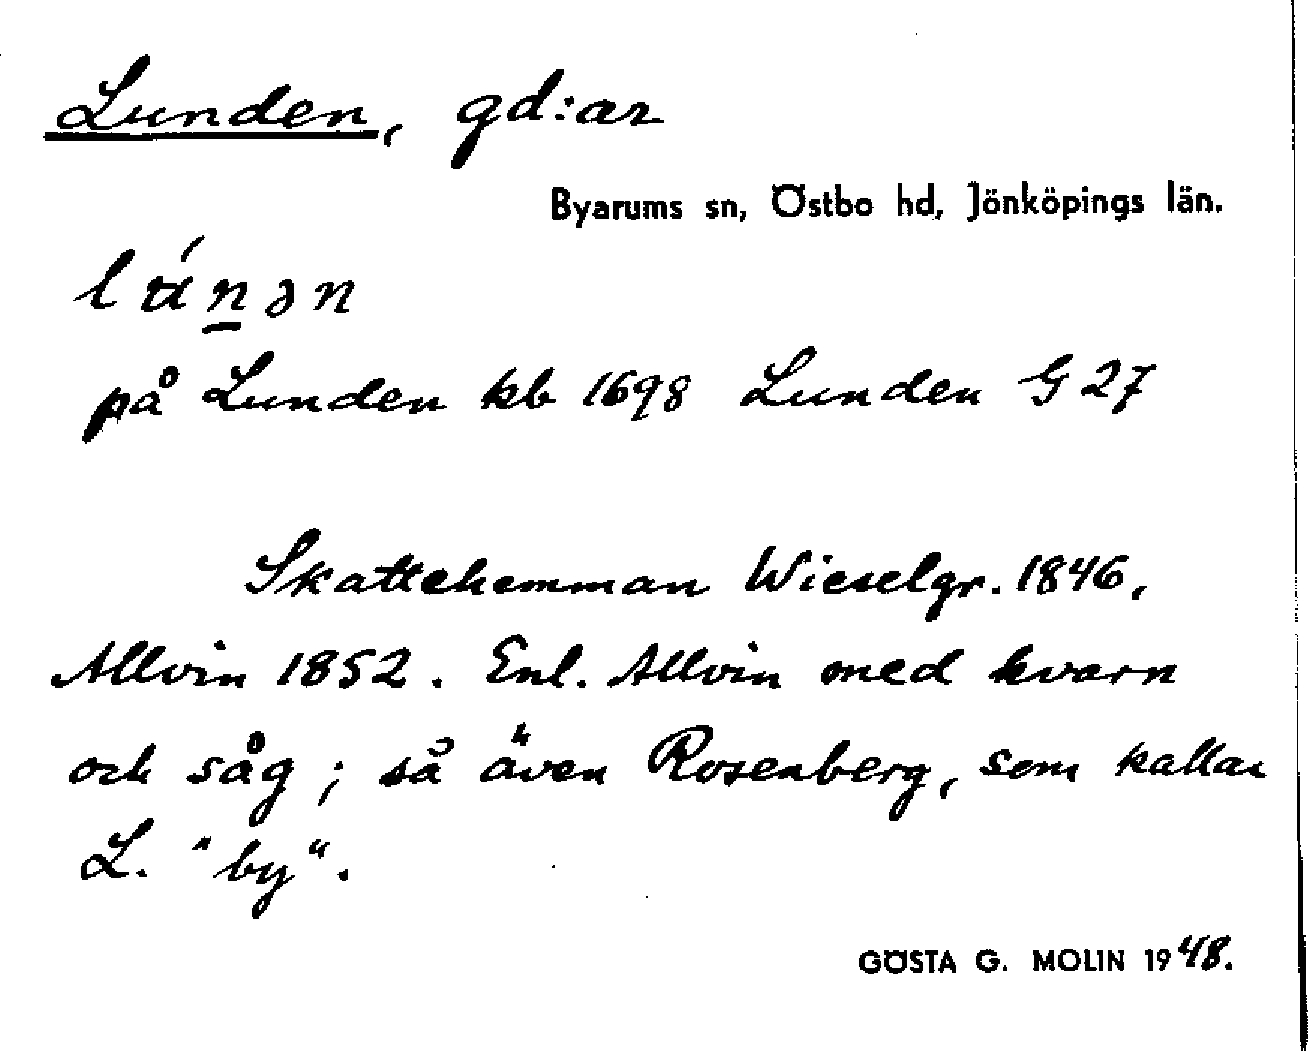 Lunden, gd:ar
Byarums sn, Östbo hd, Jönköpings län.
lʉ́n̲ən
på Lunden kb 1698 Lunden G 27
Skattehemman Wieselgr. 1846,
Allvin 1852. Enl. Allvin med kvarn
och såg; så även Rosenberg, som kallar
L. "by".
GÖSTA G. MOLIN 1948.